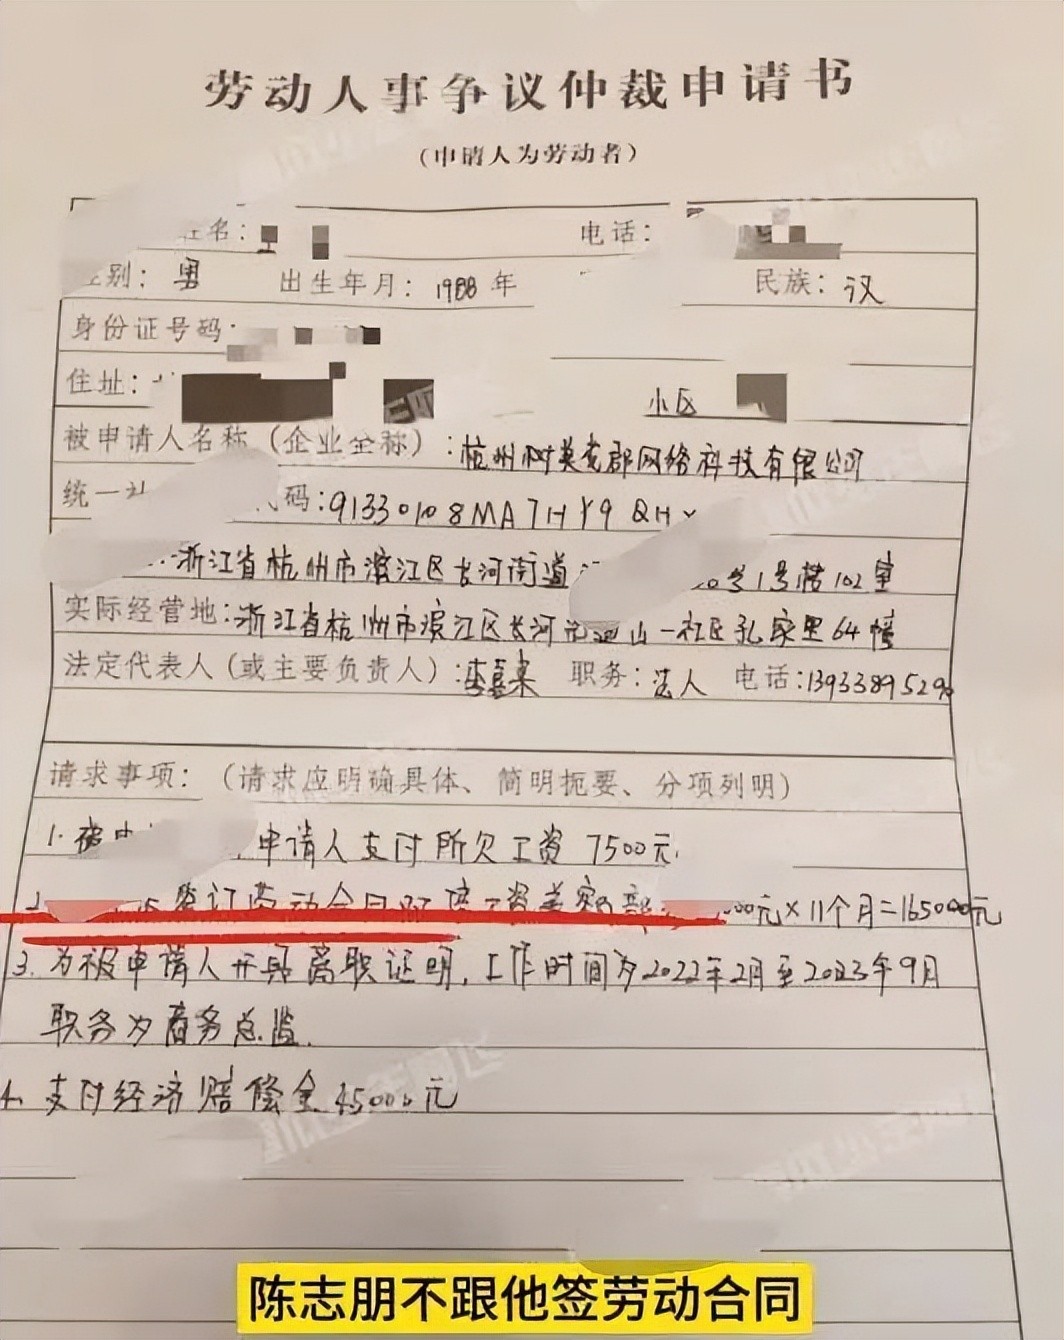 劳动人事争议仲裁申请书
（申请人为劳动者）
姓名： 电话：
性别：男 出生年月：1988年 民族：汉
身份证号码：
住址： 小区
被申请人名称（企业全称）：杭州树莫戈郡网络科技有限公司
统一社 代码：91330108MA7HY9QHX
浙江省杭州市滨江区长河街道 号1号楼102室
实际经营地：浙江省杭州市滨江区长河 山一社区孔家里64幢
法定代表人（或主要负责人）：李 职务：法人 电话：1393389529
请求事项：（请求应明确具体、简明扼要、分项列明）
1. 被申 申请人支付所欠工资7500元.
2 签订劳动合同 赔工资差额部 000元×11个月=165000元
3. 为被申请人开具离职证明，工作时间为2022年2月至2023年9月
职务为商务总监.
4. 支付经济赔偿金45000元
陈志朋不跟他签劳动合同